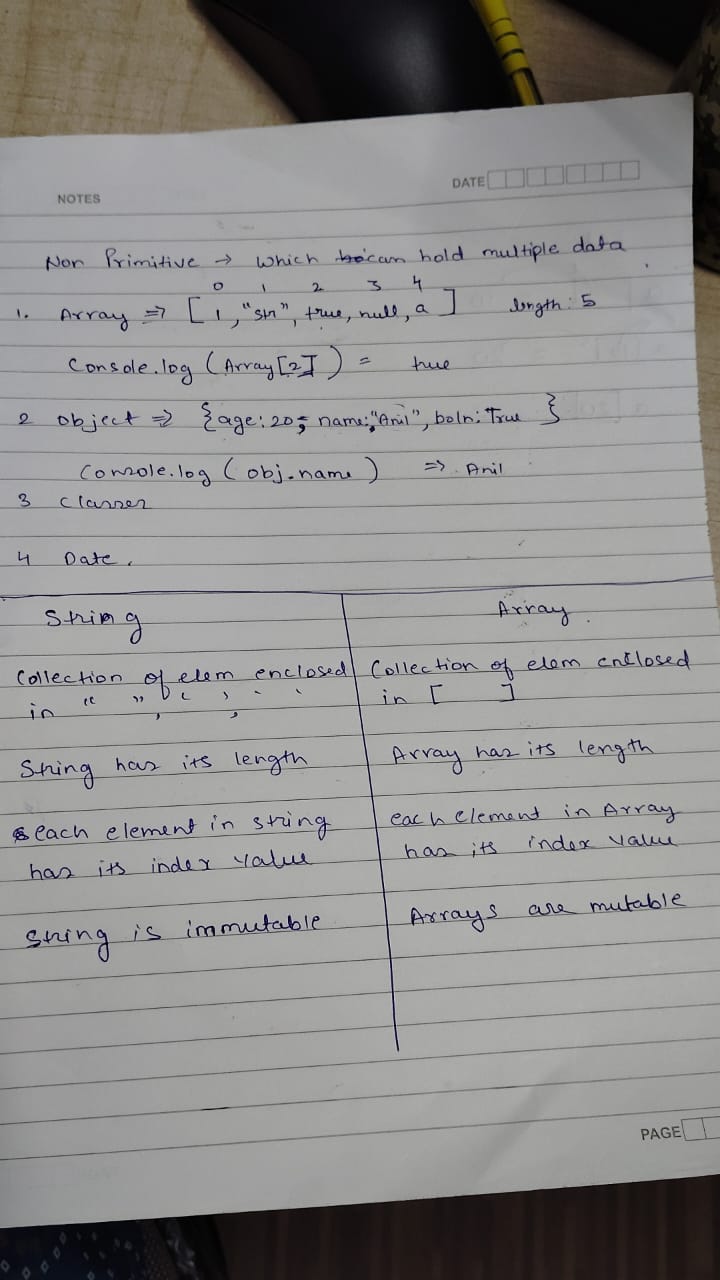 NOTES
DATE
Non Primitive → which can hold multiple data
0 1 2 3 4
1. Array ⇒ [1, "str", true, null, a] length: 5
Console.log (Array[2]) = true
2 object ⇒ {age: 20, name: "Anil", boln: True }
Console.log ( obj.name ) ⇒ Anil
3 Classes
4 Date.
String
Array.
Collection of elem enclosed
in " ", ' ', ` `
Collection of elem enclosed
in [ ]
String has its length
Array has its length
each element in string
has its index value
each element in Array
has its index value
String is immutable
Arrays are mutable
PAGE